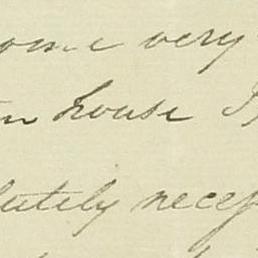 some very
house I
lutely necep